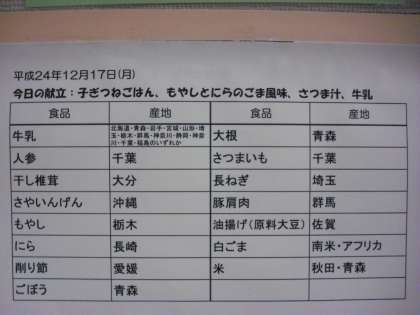 平成24年12月17日(月)
今日の献立：子ぎつねごはん、もやしとにらのごま風味、さつま汁、牛乳
食品 産地 食品 産地
牛乳 北海道・青森・岩手・宮城・山形・埼玉・栃木・群馬・神奈川・静岡・神奈川・千葉・福島のいずれか 大根 青森
人参 千葉 さつまいも 千葉
干し椎茸 大分 長ねぎ 埼玉
さやいんげん 沖縄 豚肩肉 群馬
もやし 栃木 油揚げ（原料大豆） 佐賀
にら 長崎 白ごま 南米・アフリカ
削り節 愛媛 米 秋田・青森
ごぼう 青森